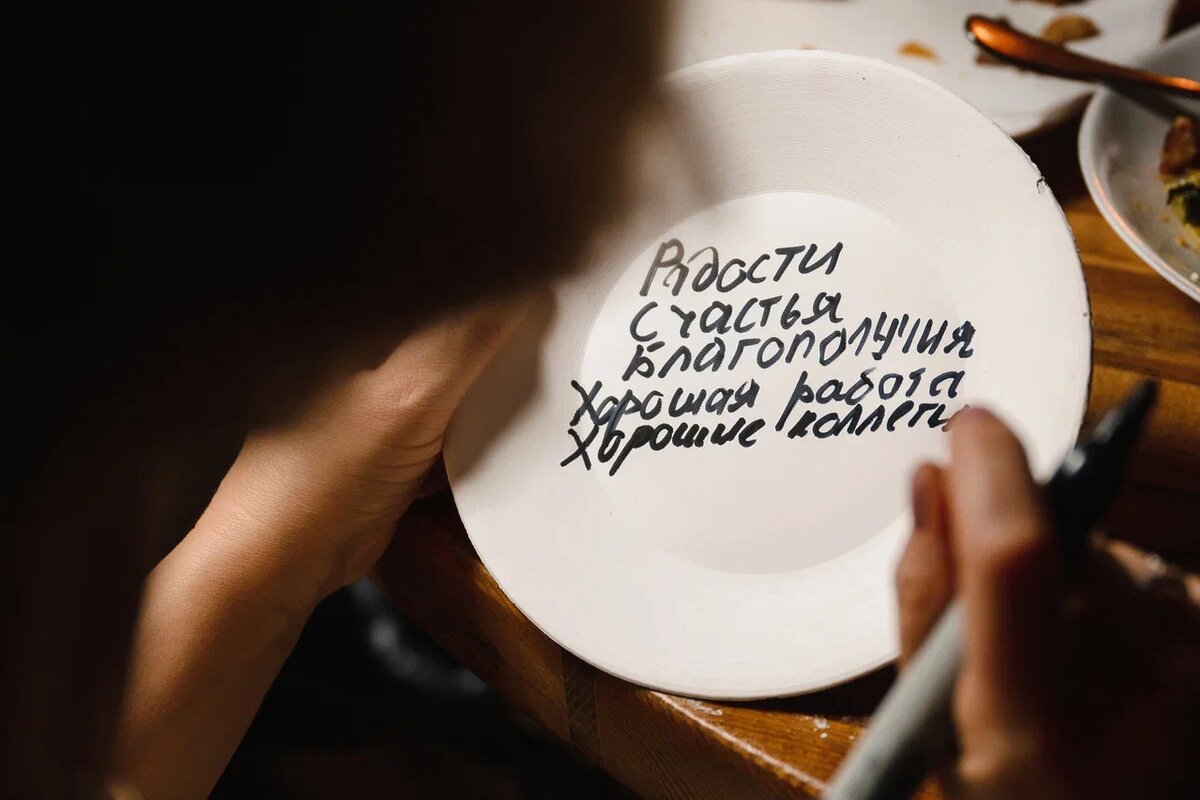 Радости
Счастья
Благополучия
Хорошая работа
Хорошие коллеги